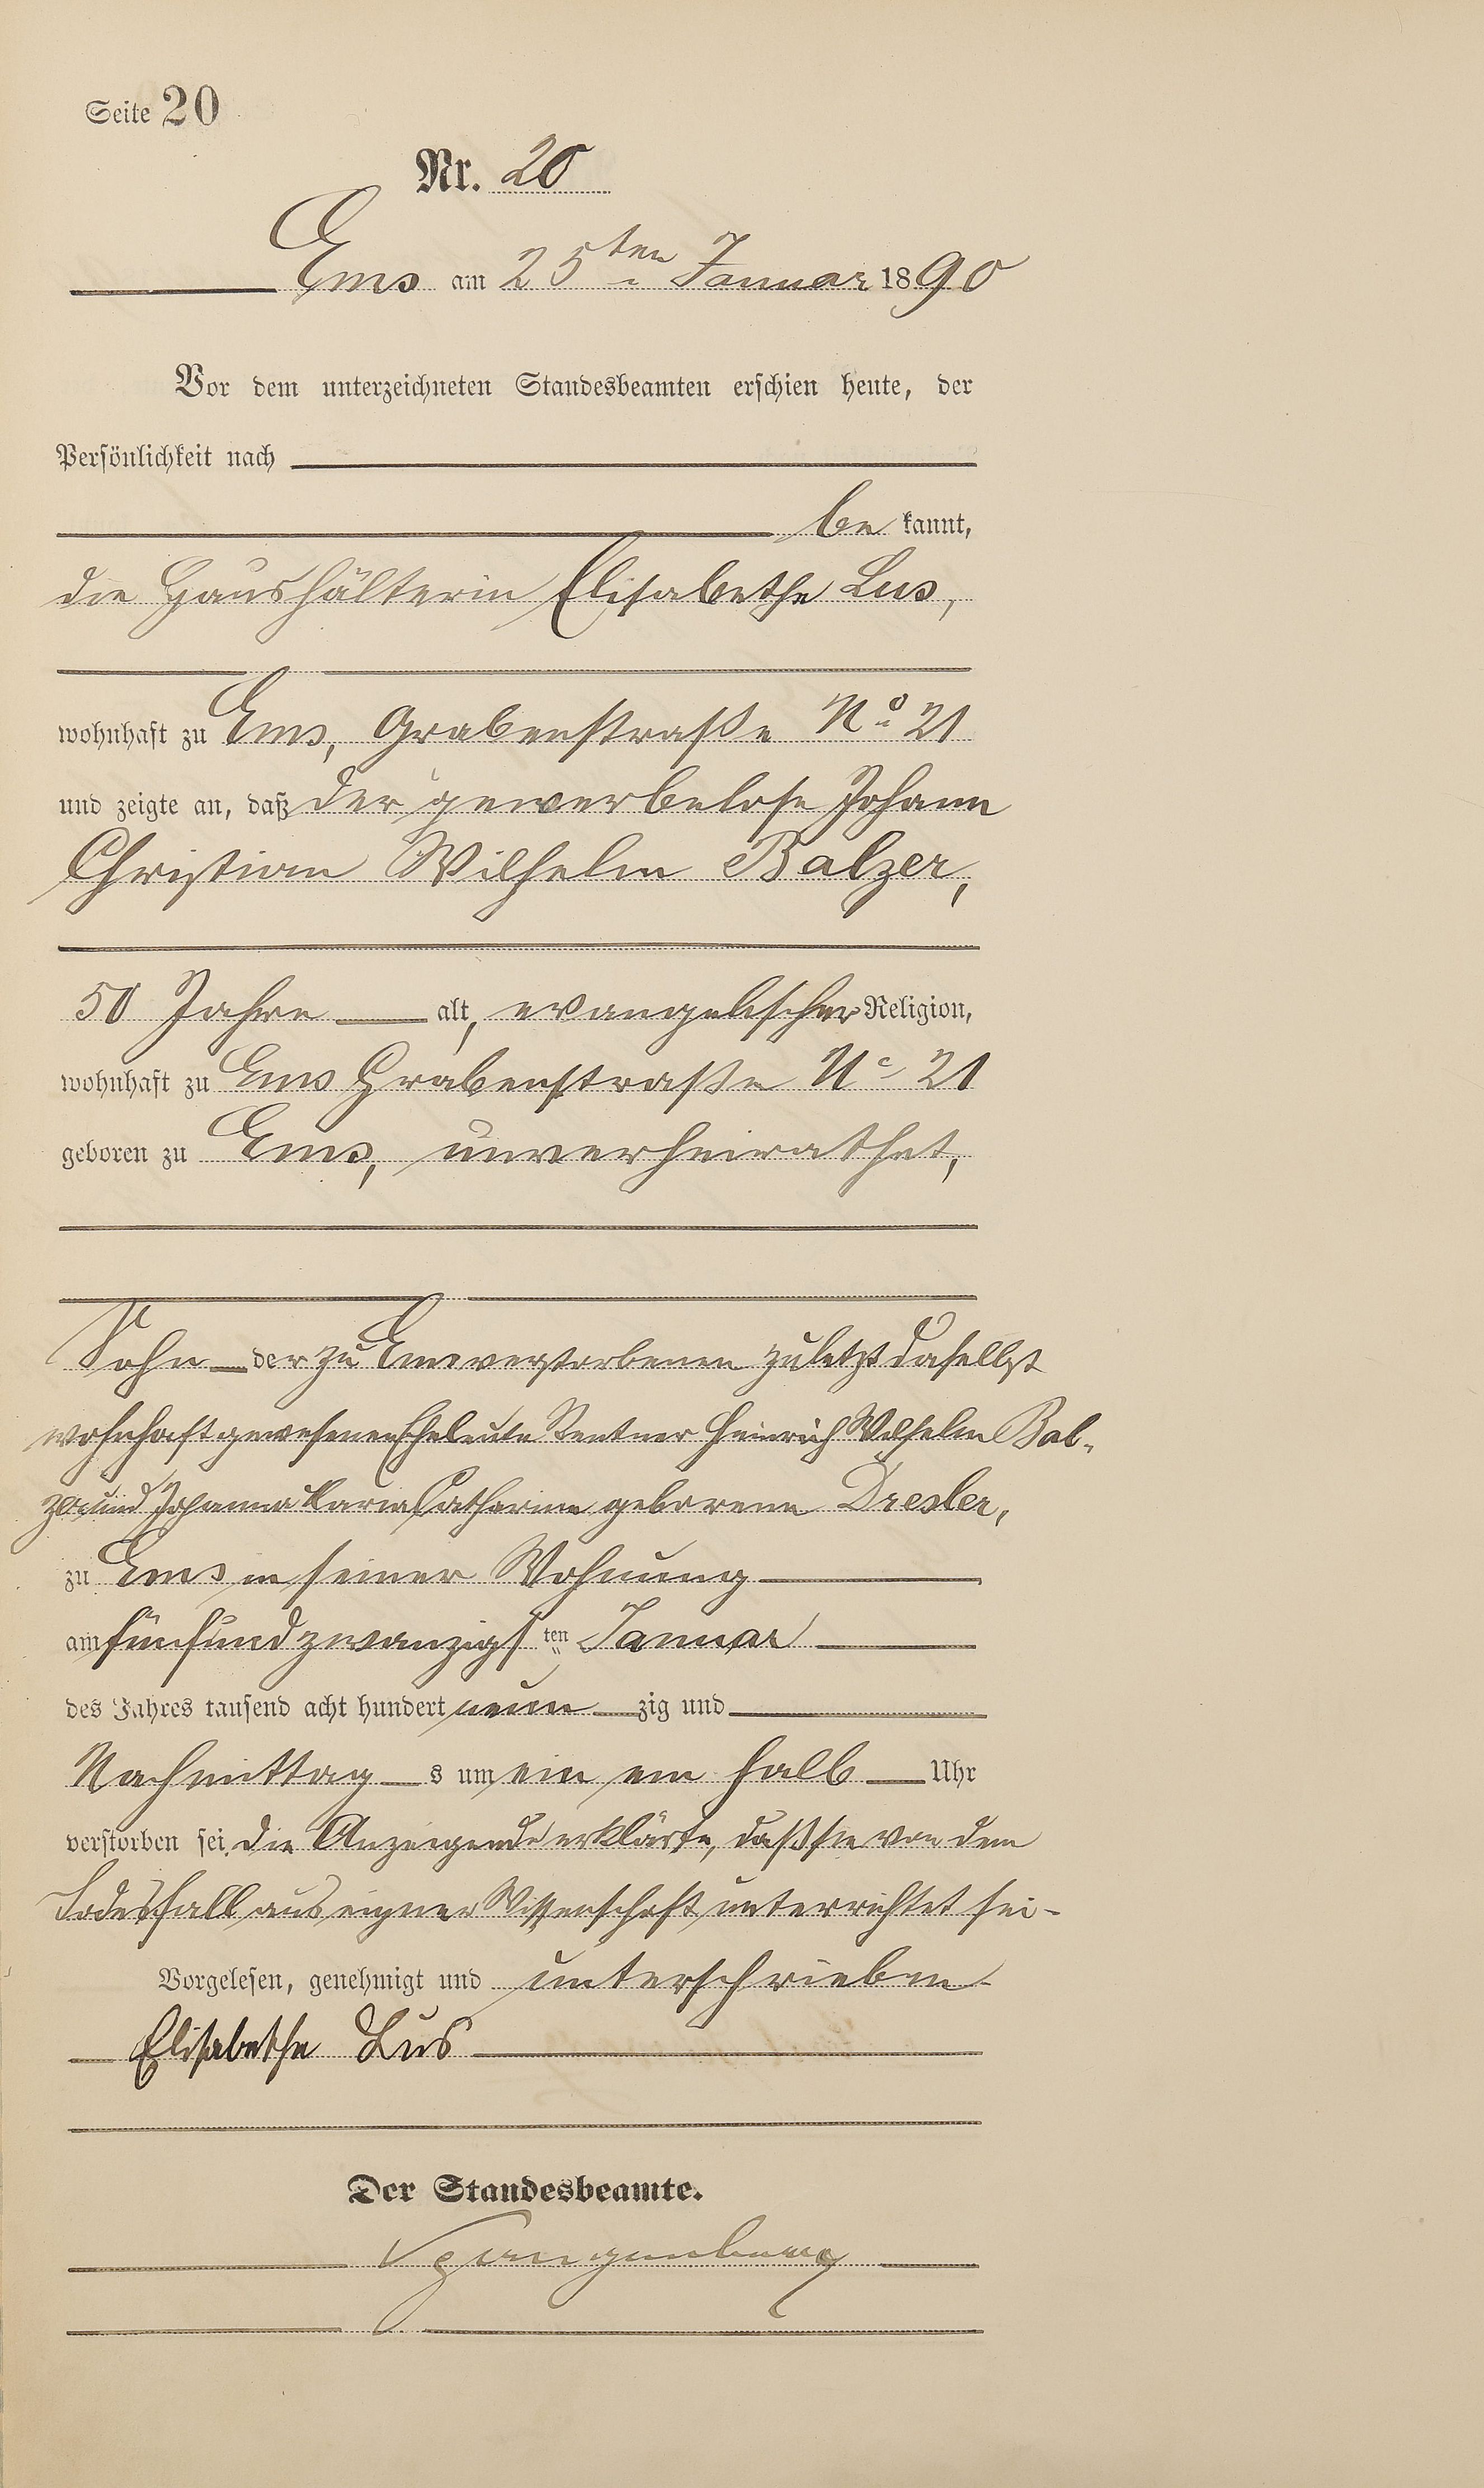 Seite 20
Nr. 20
Ems am 25ten Januar 1890
Vor dem unterzeichneten Standesbeamten erschien heute, der
Persönlichkeit nach
be kannt,
die Haushälterin Elisabethe Lus,
wohnhaft zu Ems, Grabenstraße No 21
und zeigte an, daß der gewerbelose Johann
Christian Wilhelm Balzer,
50 Jahre alt, evangelischer Religion,
wohnhaft zu Ems Grabenstraße No 21
geboren zu Ems, unverheirathet,
Sohn der zu Ems verstorbenen zuletzt daselbst
wohnhaft gewesenen Eheleute Rentner Heinrich Wilhelm Bal-
zer und Johanna Maria Catharina geborene Dresler,
zu Ems in seiner Wohnung
am fünfundzwanzigsten Januar
des Jahres tausend acht hundert neun zig und
Nachmittag s um ein ein halb Uhr
verstorben sei. Die Anzeigende erklärte, daß sie von dem
Todesfall aus eigner Wissenschaft unterrichtet sei-
Vorgelesen, genehmigt und unterschrieben
Elisabethe Lus
Der Standesbeamte.
Spangenberg